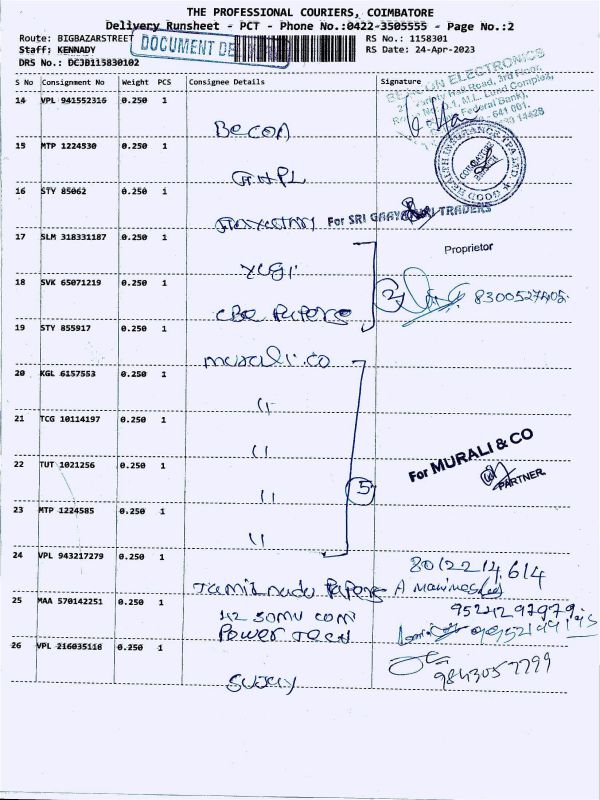 THE PROFESSIONAL COURIERS, COIMBATORE
Delivery Runsheet - PCT - Phone No.:0422-3505555 - Page No.:2
Route: BIGBAZARSTREET DOCUMENT DE RS No.: 1158301
Staff: KENNADY RS Date: 24-Apr-2023
DRS No.: DCJB115830102
S No Consignment No Weight PCS Consignee Details Signature
BEACON ELECTRONICS
14 VPL 941552316 0.250 1
Becon
15 MTP 1224530 0.250 1
GOOD HEALTH INSURANCE TPA LTD
COIMBATORE
16 STY 85062 0.250 1
For SRI GAAYA TRADERS
17 SLM 318331187 0.250 1
Proprietor
18 SVK 65071219 0.250 1
2 8300527405
CBE Papers
19 STY 855917 0.250 1
Murali.co
20 KGL 6157553 0.250 1
"
21 TCG 10114197 0.250 1
"
22 TUT 1021256 0.250 1
For MURALI & CO
PARTNER.
" 5
23 MTP 1224585 0.250 1
"
24 VPL 943217279 0.250 1
8012214614
Tamilnadu Papers
25 MAA 570142251 0.250 1
42 Somu com
Power Tech
26 VPL 216035118 0.250 1
9843057799